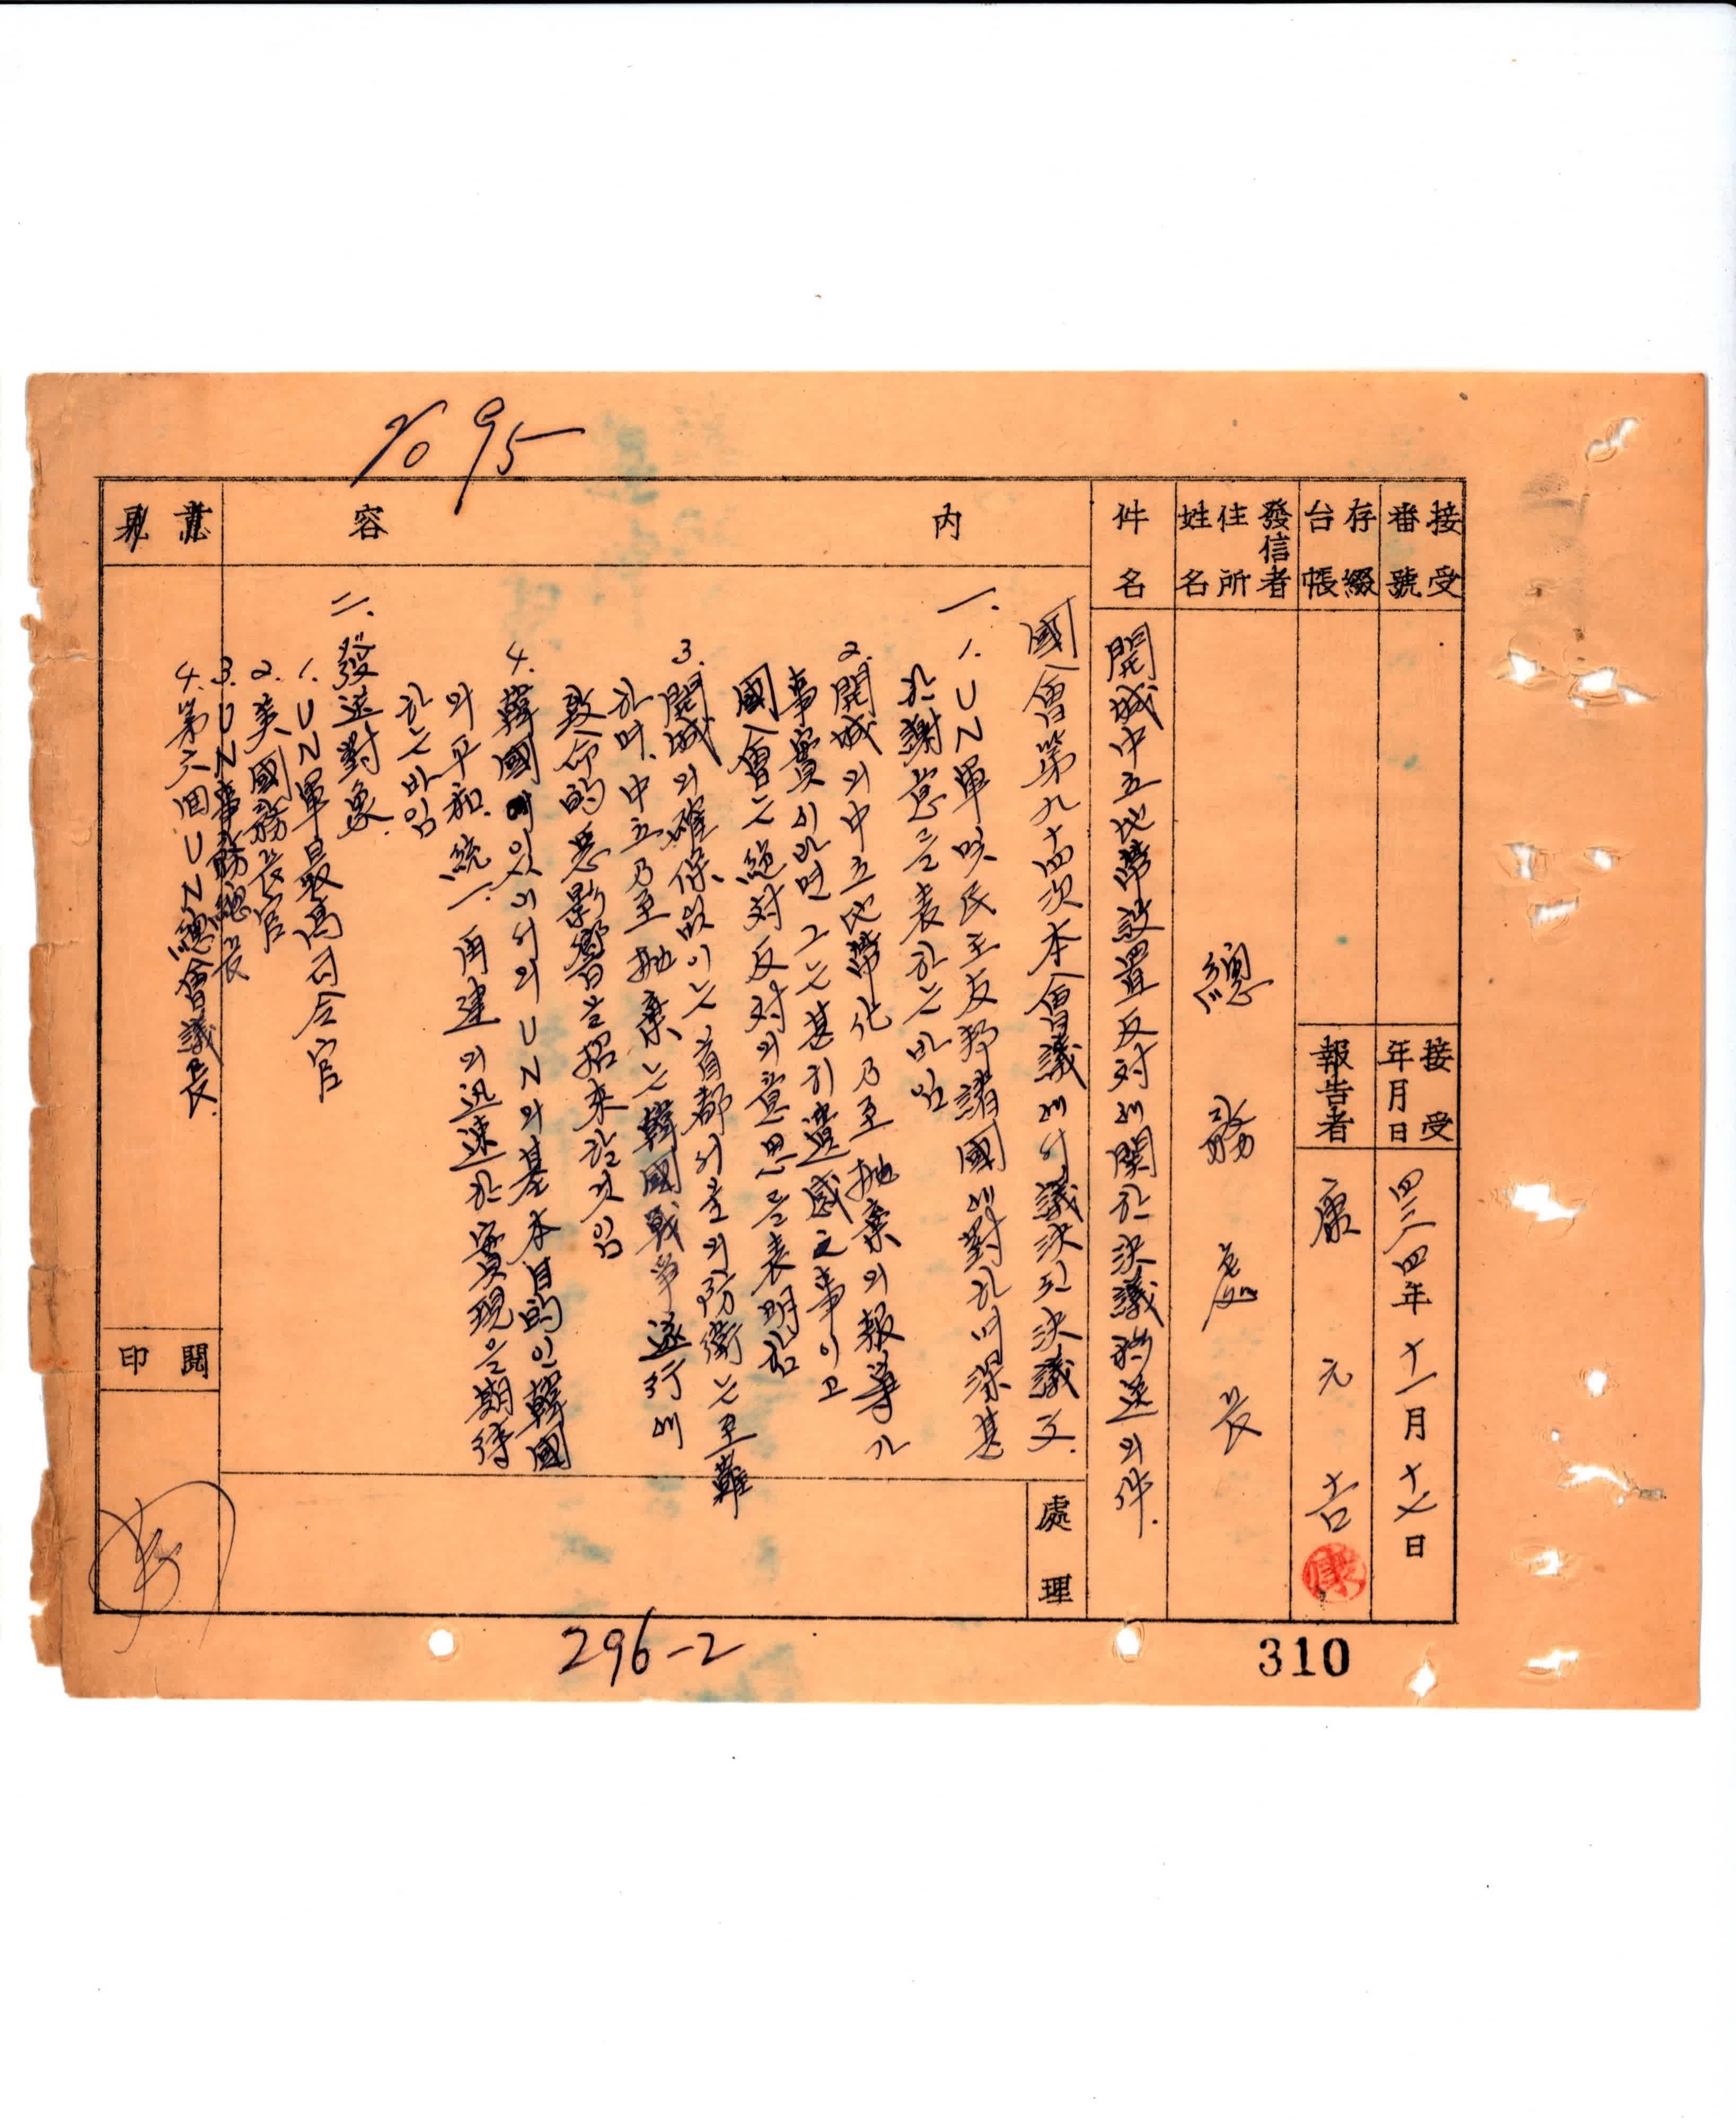 接受番號
接受年月日
四二八四年十一月十七日
存綴台帳
報告者
康元吉
康
發信者
住所
姓名
總務處長
件名
開城中立地帶設置反对에関한決議移送의件.
内容
國会第九十四次本会議에서議決된決議文.
一. 1. UN軍및民主友邦諸國에對하여深甚
한謝意를表하는바임
2. 開城의中立地帶化乃至抛棄의報導가
事實이라면그는甚히遺感之事이고
國会는絶対反対의意思를表明함
3. 開城의確保없이는首都서울의防衛는至難
하며.中立乃至抛棄는韓國戰爭遂行에
致命的惡影響을招来할것임
4. 韓國에있어서의UN의基本目的인韓國
의平和.統一.再建의迅速한實現을期待
하는바임
二. 發送對象.
1. UN軍最高司令官
2. 美國務長官
3. UN事務總長
4. 第六回UN總會議長.
處理
意見
閲印
No 95
296-2
310